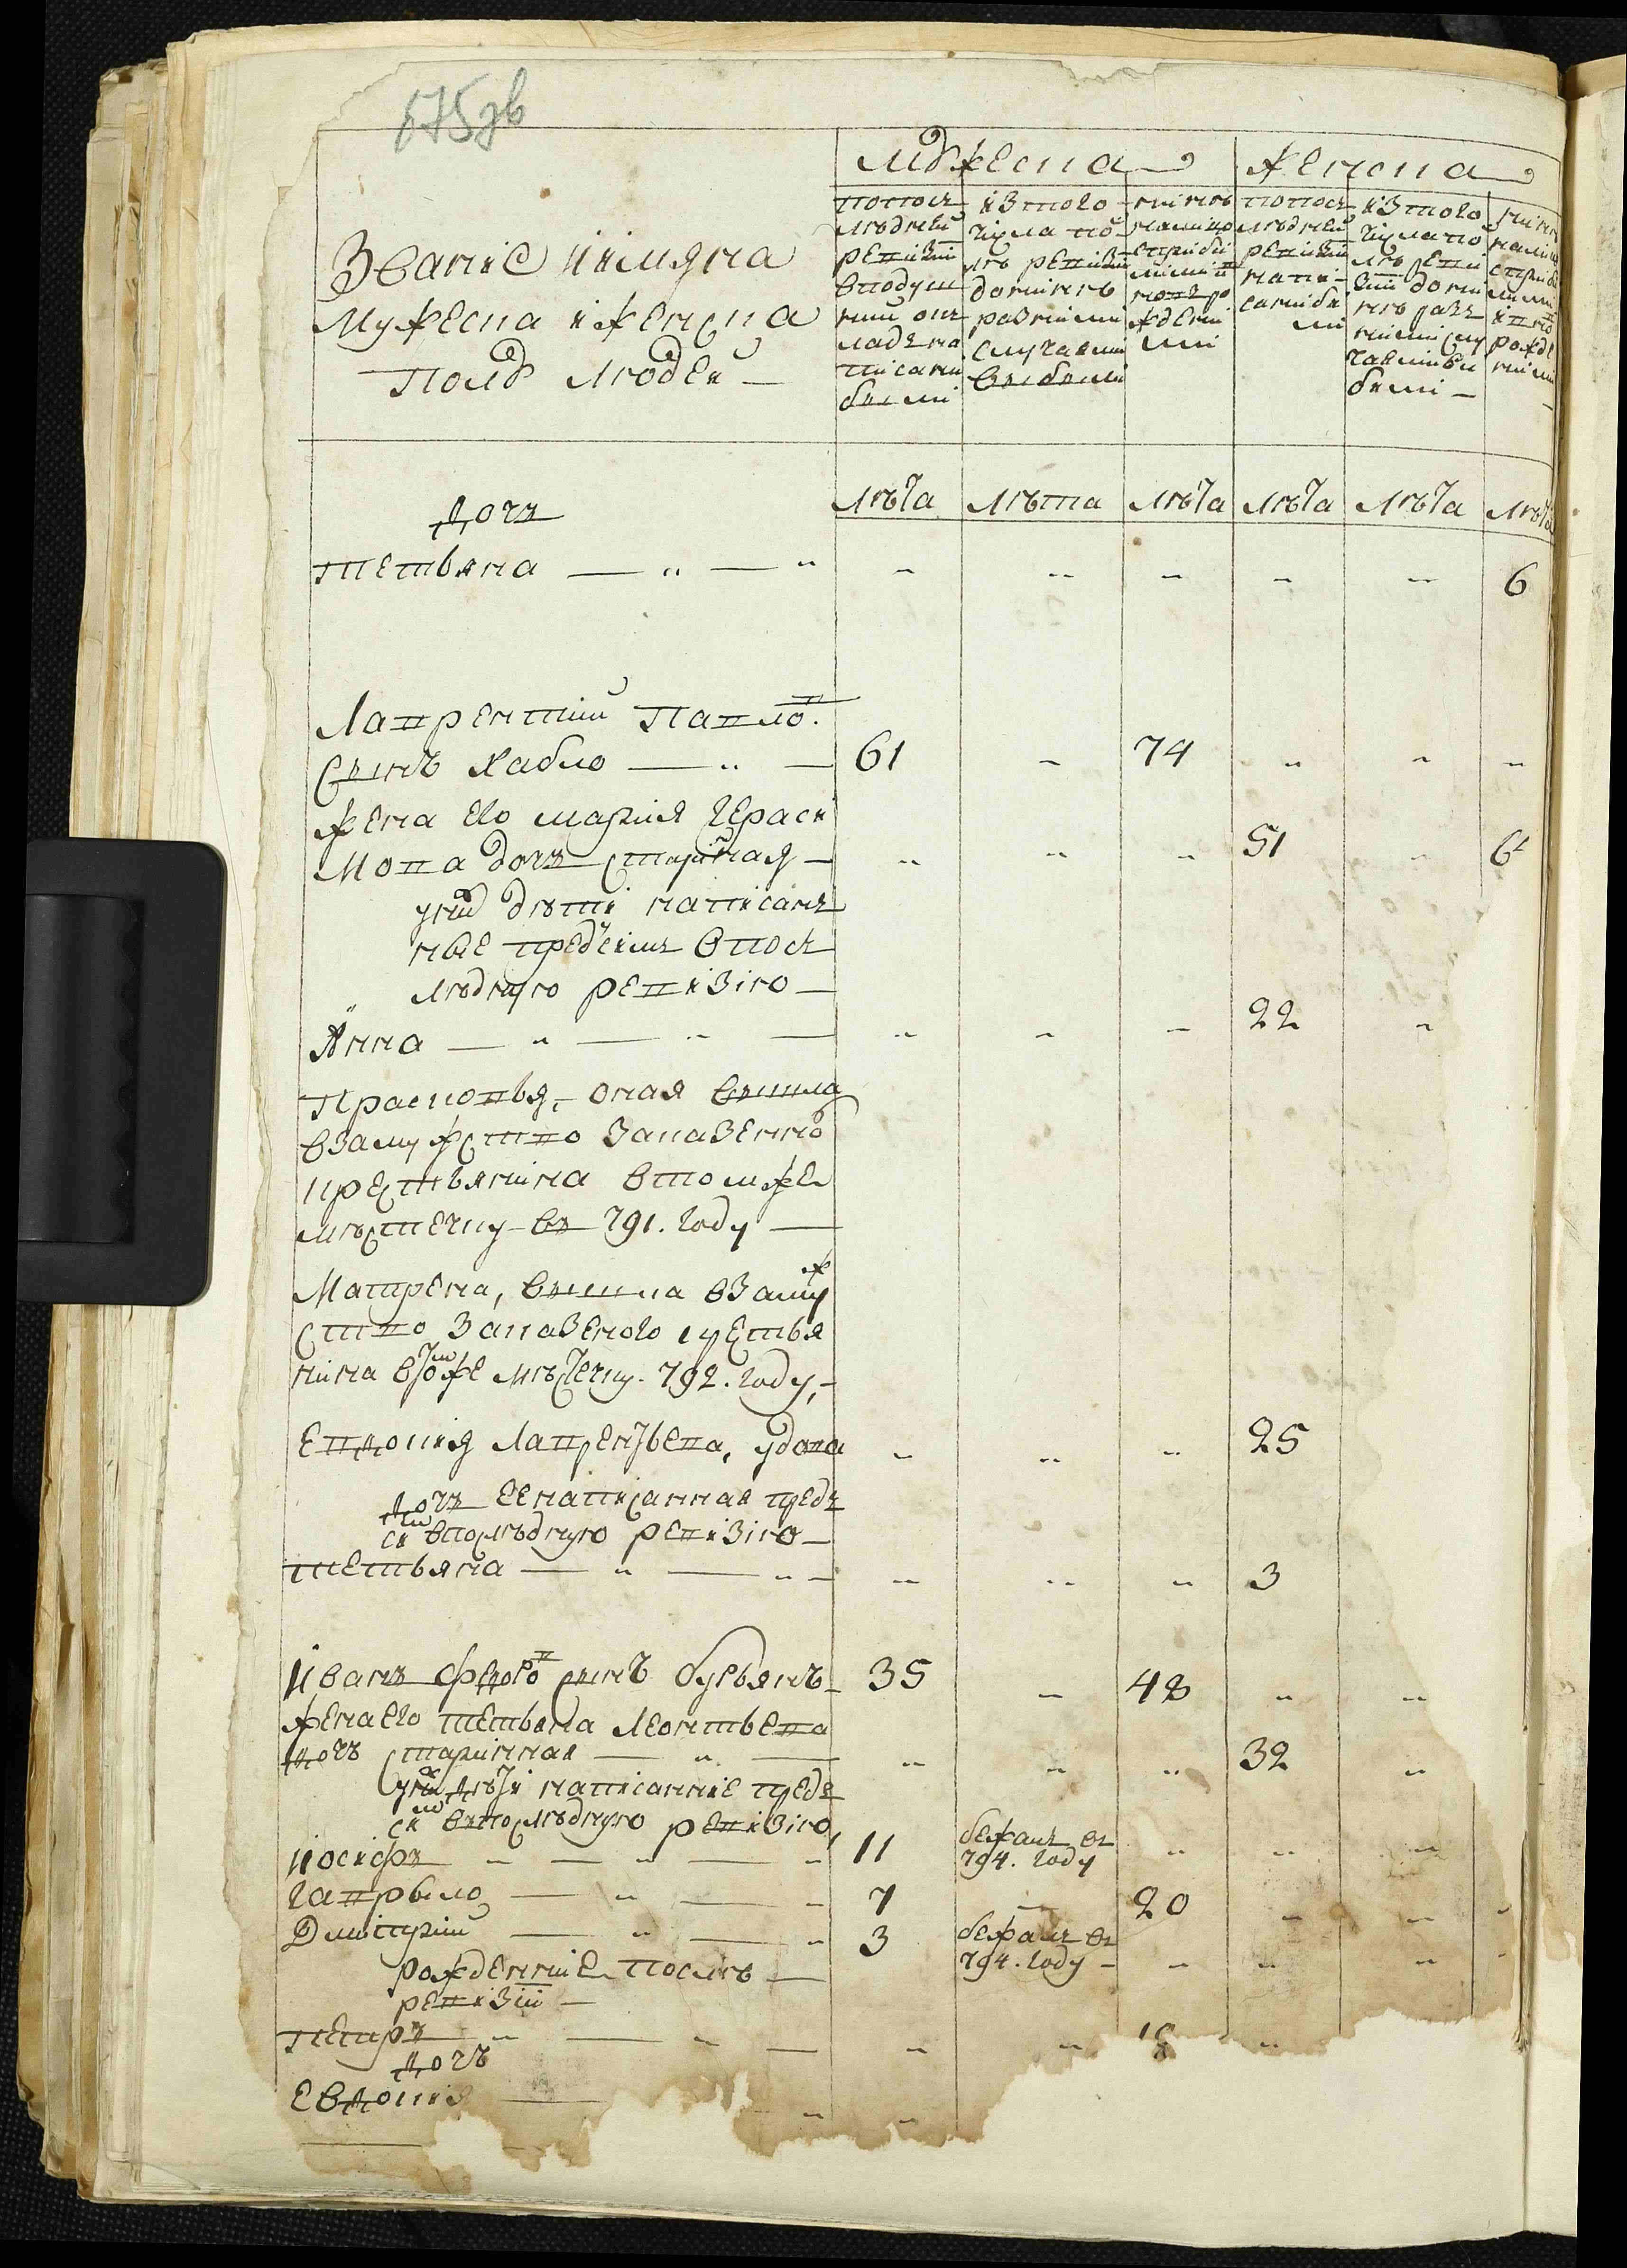 675зв
Мужеска Женска
Звание и имяна
Мужеска и женска
Полу людей —
По после дней ревизии в подуш ной окладъ на писани были
Из того числа по сле ревизии до ныне разными случаями выбыли
Ныне на лицо с прибы лыми и новъ ро жденн ми
По после дней ревизии напи сани бы ли
Из того числа по сле реви зии до ны не разъ ными слу чаями вы были —
Лѣта Лѣта Лѣта Лѣта Лѣта Лѣта
Дочъ
Тетьяна — " — " " " " " " 6
Лаврентий Павлов.
Сынъ Хабло — " — 61 " 74 " " "
Жена его Мария Гераси
мова дочъ старинная — " " " 51 "
у них дѣти написанъ
ные пред сим в после
лѣднюю ревизию —
Анна — " — " — " " " 22 "
Прасковья, оная вышла
в замужство за казенно
крестьянина в том же
мѣстечку въ 791. году —
Матрена, вышла в замуж
ство за казеного крестья
нина в том же мѣстечку. 792. году, —
Евдокия Лаврентьева, удова " " " 25
Дочъ ее написанная предъ
сим в последнюю ревизию —
Тетьяна — " — " — " " " 3
Иванъ Федоров сынъ Бурьянъ — 35 " 48 " "
жена его Тетьяна Леонтьева
дочъ старинная — " — " " " 32 "
у них дѣти написанние предъ
сим в последнюю ревизию,
Иосифъ " — " — " 11 бежалъ въ 794. году " " "
Гаврыло — " — " 7 — 20 " " "
Дмитрий — " — " 3 бежалъ въ 794. году — " " " "
рожденние после —
ревизии —
Петръ " — " — " " 18 "
Дочъ
Евдокия — " "